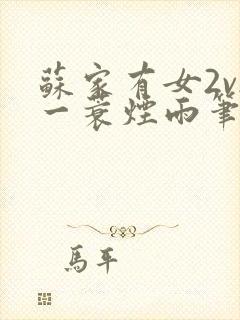 蘇家有女2v
一蓑煙雨筆
馬平